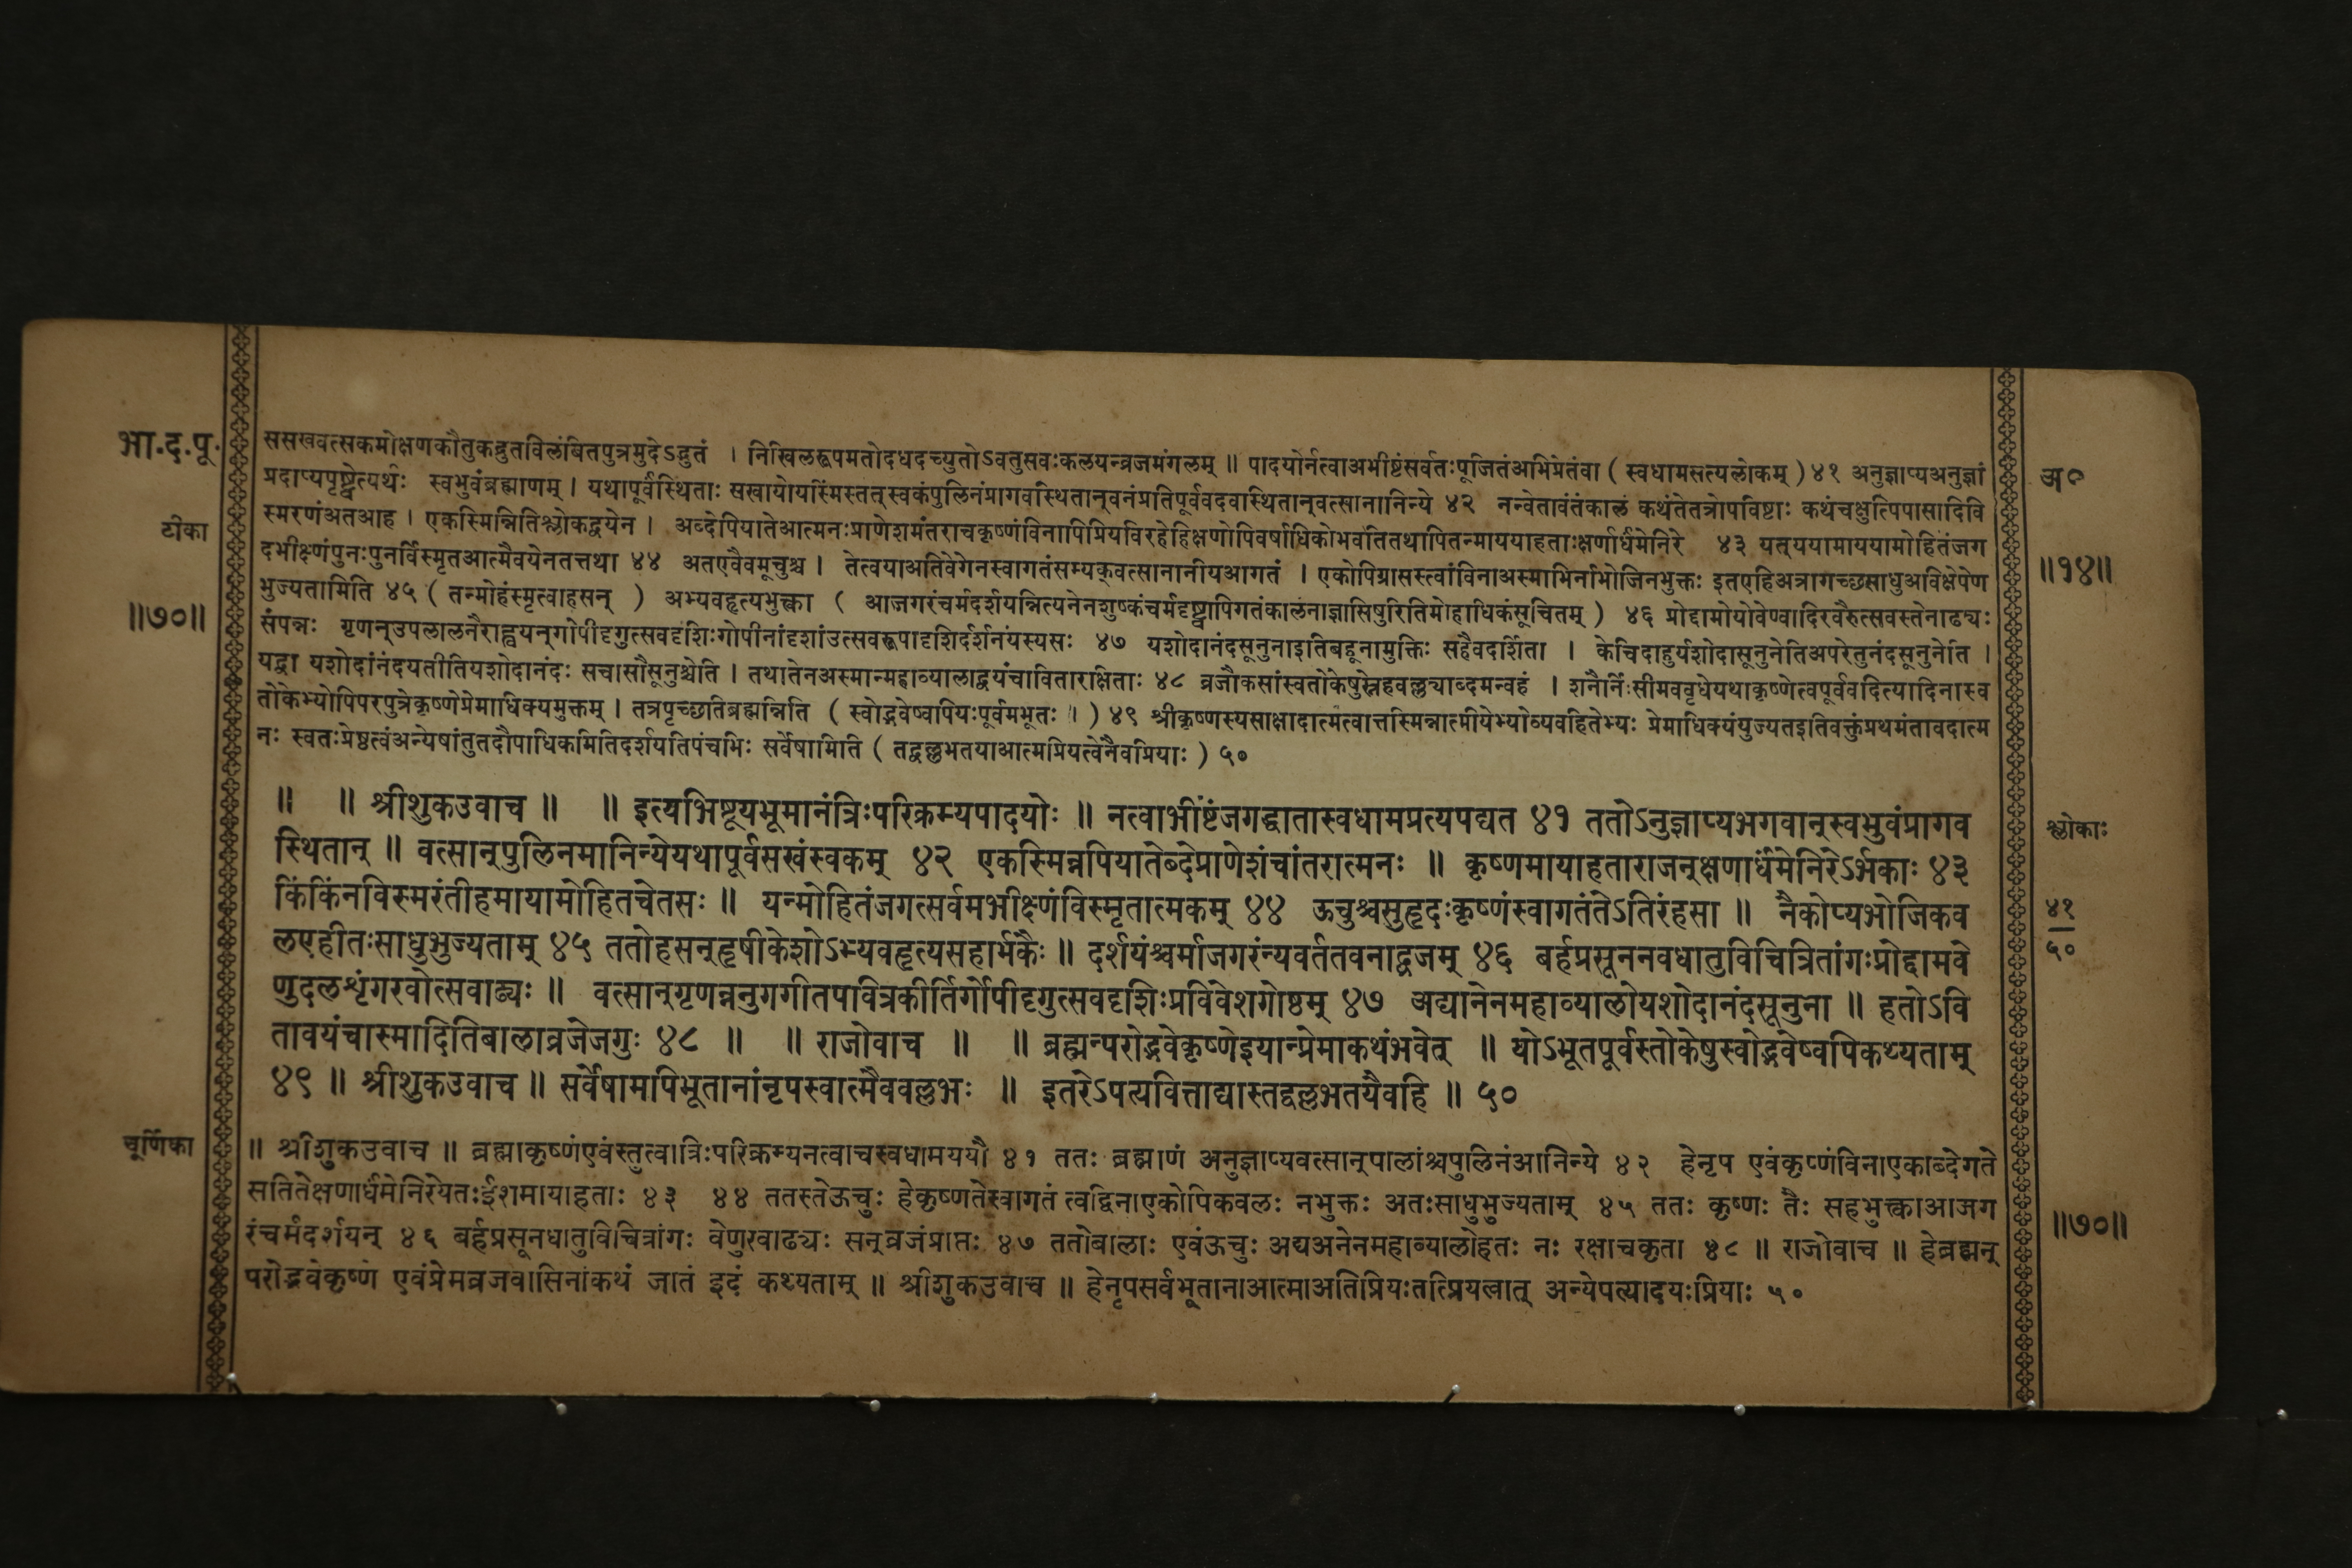 भा.द.पू.
टीका
॥७०॥
ससखवत्सकमोक्षणकौतुकद्रुतविलंबितपुत्रमुदेऽद्भुतं । निखिलरूपमतोदधदच्युतोऽवतुसवःकलयन्व्रजमंगलम् ॥ पादयोर्नत्वाअभीष्टंसर्वतःपूजितंअभिप्रेतंवा ( स्वधामसत्यलोकम् ) ४१ अनुज्ञाप्यअनुज्ञां
प्रदाप्यपृष्ट्वेत्यर्थः स्वभुवंब्रह्माणम् । यथापूर्वंस्थिताः सखायोयस्मिंस्तत् स्वकंपुलिनंप्रागवस्थितान्वनंप्रतिपूर्ववदवस्थितान्वत्सानानिन्ये ४२ नन्वेतावंतंकालं कथंतेतत्रोपविष्टाः कथंचक्षुत्पिपासादिवि
स्मरणंअतआह । एकस्मिन्नितिश्लोकद्वयेन । अब्देपियातेआत्मनःप्राणेशमंतराचकृष्णंविनापिप्रियविरहेहिक्षणोपिवर्षाधिकोभवतितथापितन्माययाहताःक्षणार्धंमेनिरे ४३ यत्ययामाययामोहितंजग
दभीक्ष्णंपुनःपुनर्विस्मृतआत्मैवयेनतत्तथा ४४ अतएवैवमूचुश्च । तेत्वयाअतिवेगेनस्वागतंसम्यक्वत्सानानीयआगतं । एकोपिग्रासस्त्वांविनाअस्माभिर्नाभोजिनभुक्तः इतएहिअत्रागच्छसाधुअविक्षेपेण
भुज्यतामिति ४५ ( तन्मोहंस्मृत्वाहसन् ) अभ्यवहृत्यभुक्त्वा ( आजगरंचर्मदर्शयन्नित्यनेनशुष्कंचर्मदृष्ट्वापिगतंकालंनाज्ञासिषुरितिमोहाधिकंसूचितम् ) ४६ प्रोद्दामोयोवेण्वादिरवैरुत्सवस्तेनाढ्यः
संपन्नः गृणन्उपलालनैराह्वयन्गोपीदृगुत्सवदृशिःगोपीनांदृशांउत्सवरूपादृशिर्दर्शनंयस्यसः ४७ यशोदानंदसूनुनाइतिबहूनामुक्तिः सहैवदर्शिता । केचिदाहुर्यशोदासूनुनेतिअपरेतुनंदसूनुनेति ।
यद्वा यशोदांनंदयतीतियशोदानंदः सचासौसूनुश्चेति । तथातेनअस्मान्महाव्यालाद्वयंचावितारक्षिताः ४८ व्रजौकसांस्वतोकेषुस्नेहवल्ल्याब्दमन्वहं । शनैर्निःसीमववृधेयथाकृष्णेत्वपूर्ववदित्यादिनास्व
तोकेभ्योपिपरपुत्रेकृष्णेप्रेमाधिक्यमुक्तम् । तत्रपृच्छतिब्रह्मन्निति ( स्वोद्भवेष्वपियःपूर्वमभूतः । ) ४९ श्रीकृष्णस्यसाक्षादात्मत्वात्तस्मिन्नात्मीयेभ्योव्यवहितेभ्यः प्रेमाधिक्यंयुज्यतइतिवक्तुंप्रथमंतावदात्म
नः स्वतःप्रेष्ठत्वंअन्येषांतुतदौपाधिकमितिदर्शयतिपंचभिः सर्वेषामिति ( तद्वल्लभतयाआत्मप्रियत्वेनैवप्रियाः ) ५०
॥ ॥ श्रीशुकउवाच ॥ ॥ इत्यभिष्टूयभूमानंत्रिःपरिक्रम्यपादयोः ॥ नत्वाभीष्टंजगद्धातास्वधामप्रत्यपद्यत ४१ ततोऽनुज्ञाप्यभगवान्स्वभुवंप्रागव
स्थितान् ॥ वत्सान्पुलिनमानिन्येयथापूर्वसखंस्वकम् ४२ एकस्मिन्नपियातेब्देप्राणेशंचांतरात्मनः ॥ कृष्णमायाहताराजन्क्षणार्धंमेनिरेऽर्भकाः ४३
किंकिंनविस्मरंतीहमायामोहितचेतसः ॥ यन्मोहितंजगत्सर्वमभीक्ष्णंविस्मृतात्मकम् ४४ ऊचुश्चसुहृदःकृष्णंस्वागतंतेऽतिरंहसा ॥ नैकोप्यभोजिकव
लएहीतःसाधुभुज्यताम् ४५ ततोहसन्हृषीकेशोऽभ्यवहृत्यसहार्भकैः ॥ दर्शयंश्चर्माजगरंन्यवर्ततवनाद्व्रजम् ४६ बर्हप्रसूननवधातुविचित्रितांगःप्रोद्दामवे
णुदलशृंगरवोत्सवाढ्यः ॥ वत्सान्गृणन्ननुगगीतपवित्रकीर्तिर्गोपीदृगुत्सवदृशिःप्रविवेशगोष्ठम् ४७ अद्यानेनमहाव्यालोयशोदानंदसूनुना ॥ हतोऽवि
तावयंचास्मादितिबालाव्रजेजगुः ४८ ॥ ॥ राजोवाच ॥ ॥ ब्रह्मन्परोद्भवेकृष्णेइयान्प्रेमाकथंभवेत् ॥ योऽभूतपूर्वस्तोकेषुस्वोद्भवेष्वपिकथ्यताम्
४९ ॥ श्रीशुकउवाच ॥ सर्वेषामपिभूतानांनृपस्वात्मैववल्लभः ॥ इतरेऽपत्यवित्ताद्यास्तद्वल्लभतयैवहि ॥ ५०
चूर्णिका
॥ श्रीशुकउवाच ॥ ब्रह्माकृष्णंएवंस्तुत्वात्रिःपरिक्रम्यनत्वाचस्वधामययौ ४१ ततः ब्रह्माणं अनुज्ञाप्यवत्सान्पालांश्चपुलिनंआनिन्ये ४२ हेनृप एवंकृष्णंविनाएकाब्देगते
सतितेक्षणार्धंमेनिरेयतःईशमायाहताः ४३ ४४ ततस्तेऊचुः हेकृष्णतेस्वागतं त्वद्विनाएकोपिकवलः नभुक्तः अतःसाधुभुज्यताम् ४५ ततः कृष्णः तैः सहभुक्त्वाआजग
रंचर्मदर्शयन् ४६ बर्हप्रसूनधातुविचित्रांगः वेणुरवाढ्यः सन्व्रजंप्राप्तः ४७ ततोबालाः एवंऊचुः अद्यअनेनमहाव्यालोहतः नः रक्षाचकृता ४८ ॥ राजोवाच ॥ हेब्रह्मन्
परोद्भवेकृष्णे एवंप्रेमव्रजवासिनांकथं जातं इदं कथ्यताम् ॥ श्रीशुकउवाच ॥ हेनृपसर्वभूतानाआत्माअतिप्रियःतत्प्रियत्वात् अन्येपत्यादयःप्रियाः ५०
अ०
॥१४॥
श्लोकाः
४१
५०
॥७०॥